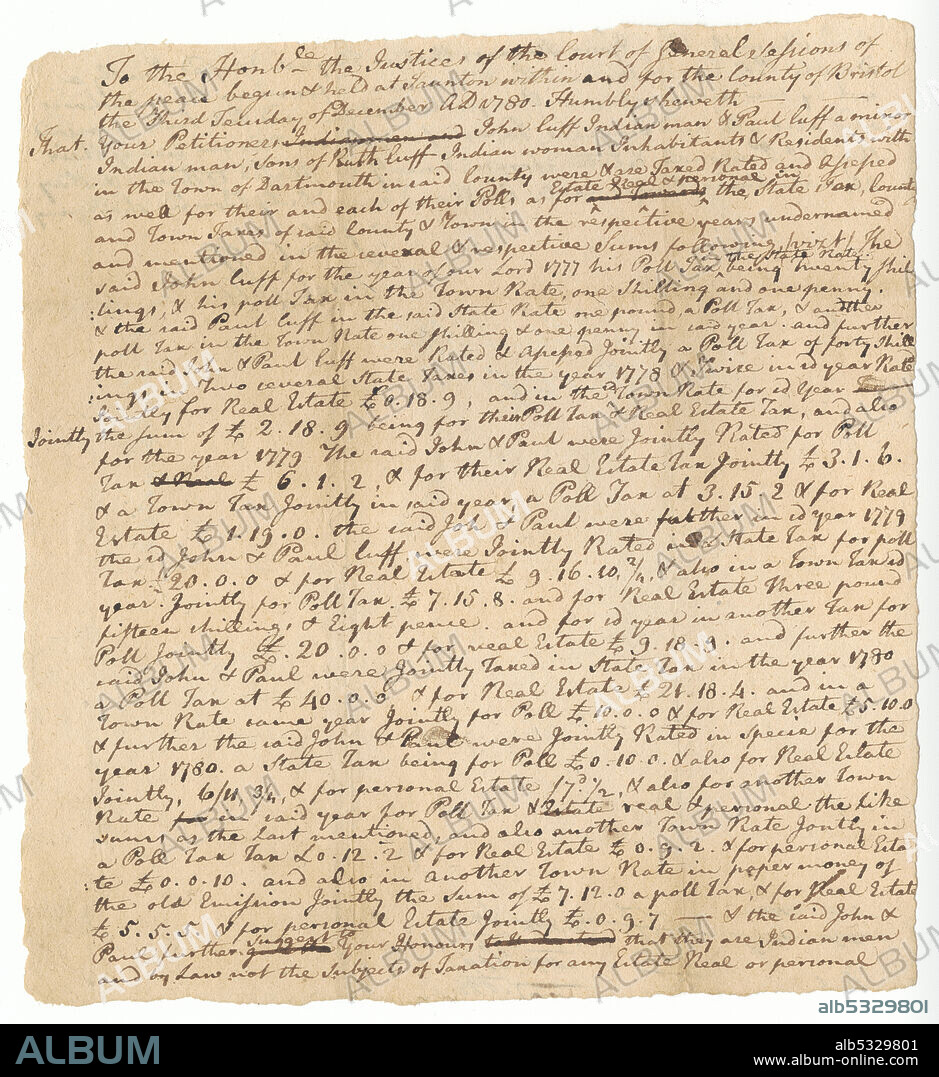 To the Honble the Justices of the Court of General sessions of
the peace begun & held at Taunton within and for the County of Bristol
the Third Teusday of December AD 1780. Humbly sheweth
That. Your Petitioners Indian men and John Cuff Indian man & Paul Cuff a minor
Indian man, Sons of Ruth Cuff Indian woman Inhabitants & Residents with
in the Town of Dartmouth in said County were & are Taxed Rated and Assessed
as well for their and each of their Polls as for Estate Real & personal in the, State Tax, County
and Town Taxes of said County & Town in the respective years undernamed
and mentioned in the several & respective Sums following (vizt) The
said John Cuff for the year of our Lord 1777 his Poll Tax in the State Rate being twenty shil
:lings, & his poll Tax in the Town Rate, one Shilling and one penny.
& the said Paul Cuff in the said State Rate one pound, a Poll Tax, & another
poll Tax in the Town Rate one shilling & one penny in said year. and further
the said John & Paul Cuff were Rated & Assessed Jointly a Poll Tax of forty Shill
:ings in Two several State Taxes in the year 1778 & in said year
for Real Estate £0.18.9, and in the Town Rate for sd Year
Jointly the sum of £2.18.9 being for their Poll Tax & Real Estate Tax, and also
for the year 1779 The said John & Paul were Jointly Rated for Poll
Tax & Real £6.1.2, & for their Real Estate Tax Jointly £3.1.6.
& a Town Tax Jointly in said year a Poll Tax at 3.15.2 & for Real
Estate £1.19.0. the said Joh & Paul were further in sd year 1779
the sd John & Paul Cuff were Jointly Rated in a State Tax for poll
Tax £20.0.0 & for Real Estate £9.16.10, & also in a Town Tax sd
year. Jointly for Poll Tax. £7.15.8. and for Real Estate Three pound
fifteen shillings & Eight pence. and for sd year in another Tax for
Poll Jointly £.20.0.0 & for real Estate £9.18.9. and further the
said John & Paul were Jointly Taxed in State Tax in the year 1780
a Poll Tax at £40.0.0 & for Real Estate £21.18.4. and in a
Town Rate same year Jointly for Poll £10.0.0 & for Real Estate £5.10.0
& further the said John & Paul were Jointly Rated in Specie for the
year 1780. a State Tax being for Poll £0.10.0. & also for Real Estate
Jointly, 6/11 3/4, & for personal Estate /7d 1/2, & also for another Town
Rate for in said year for Poll Tax & Estate real & personal the Like
sums as the Last mentioned, and also another Town Rate Jontly in
a Poll Tax Tax £0.12.2 & for Real Estate £0.9.2. & for personal Esta
:te £0.0.10. and also in another Town Rate in paper money of
the old Emission Jointly the Sum of £7.12.0 a poll Tax, & for Real Estate
£5.5.5, & for personal Estate Jointly £.0.9.7 — & the said John &
Paul further suggest to Your Honours that they are Indian men
and by Law not the Subjects of Taxation for any Estate Real or personal
ALBUM
alb5329801
ALBUM
alb5329801
www.album-online.com